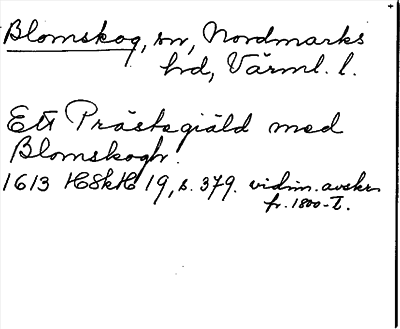 Blomskog, sn, Nordmarks
hd, Värml. l.
Ett Prästegiäld med
Blomskogh.
1613 HSkH 19, s. 379. vidim. avskr.
fr. 1800-t.